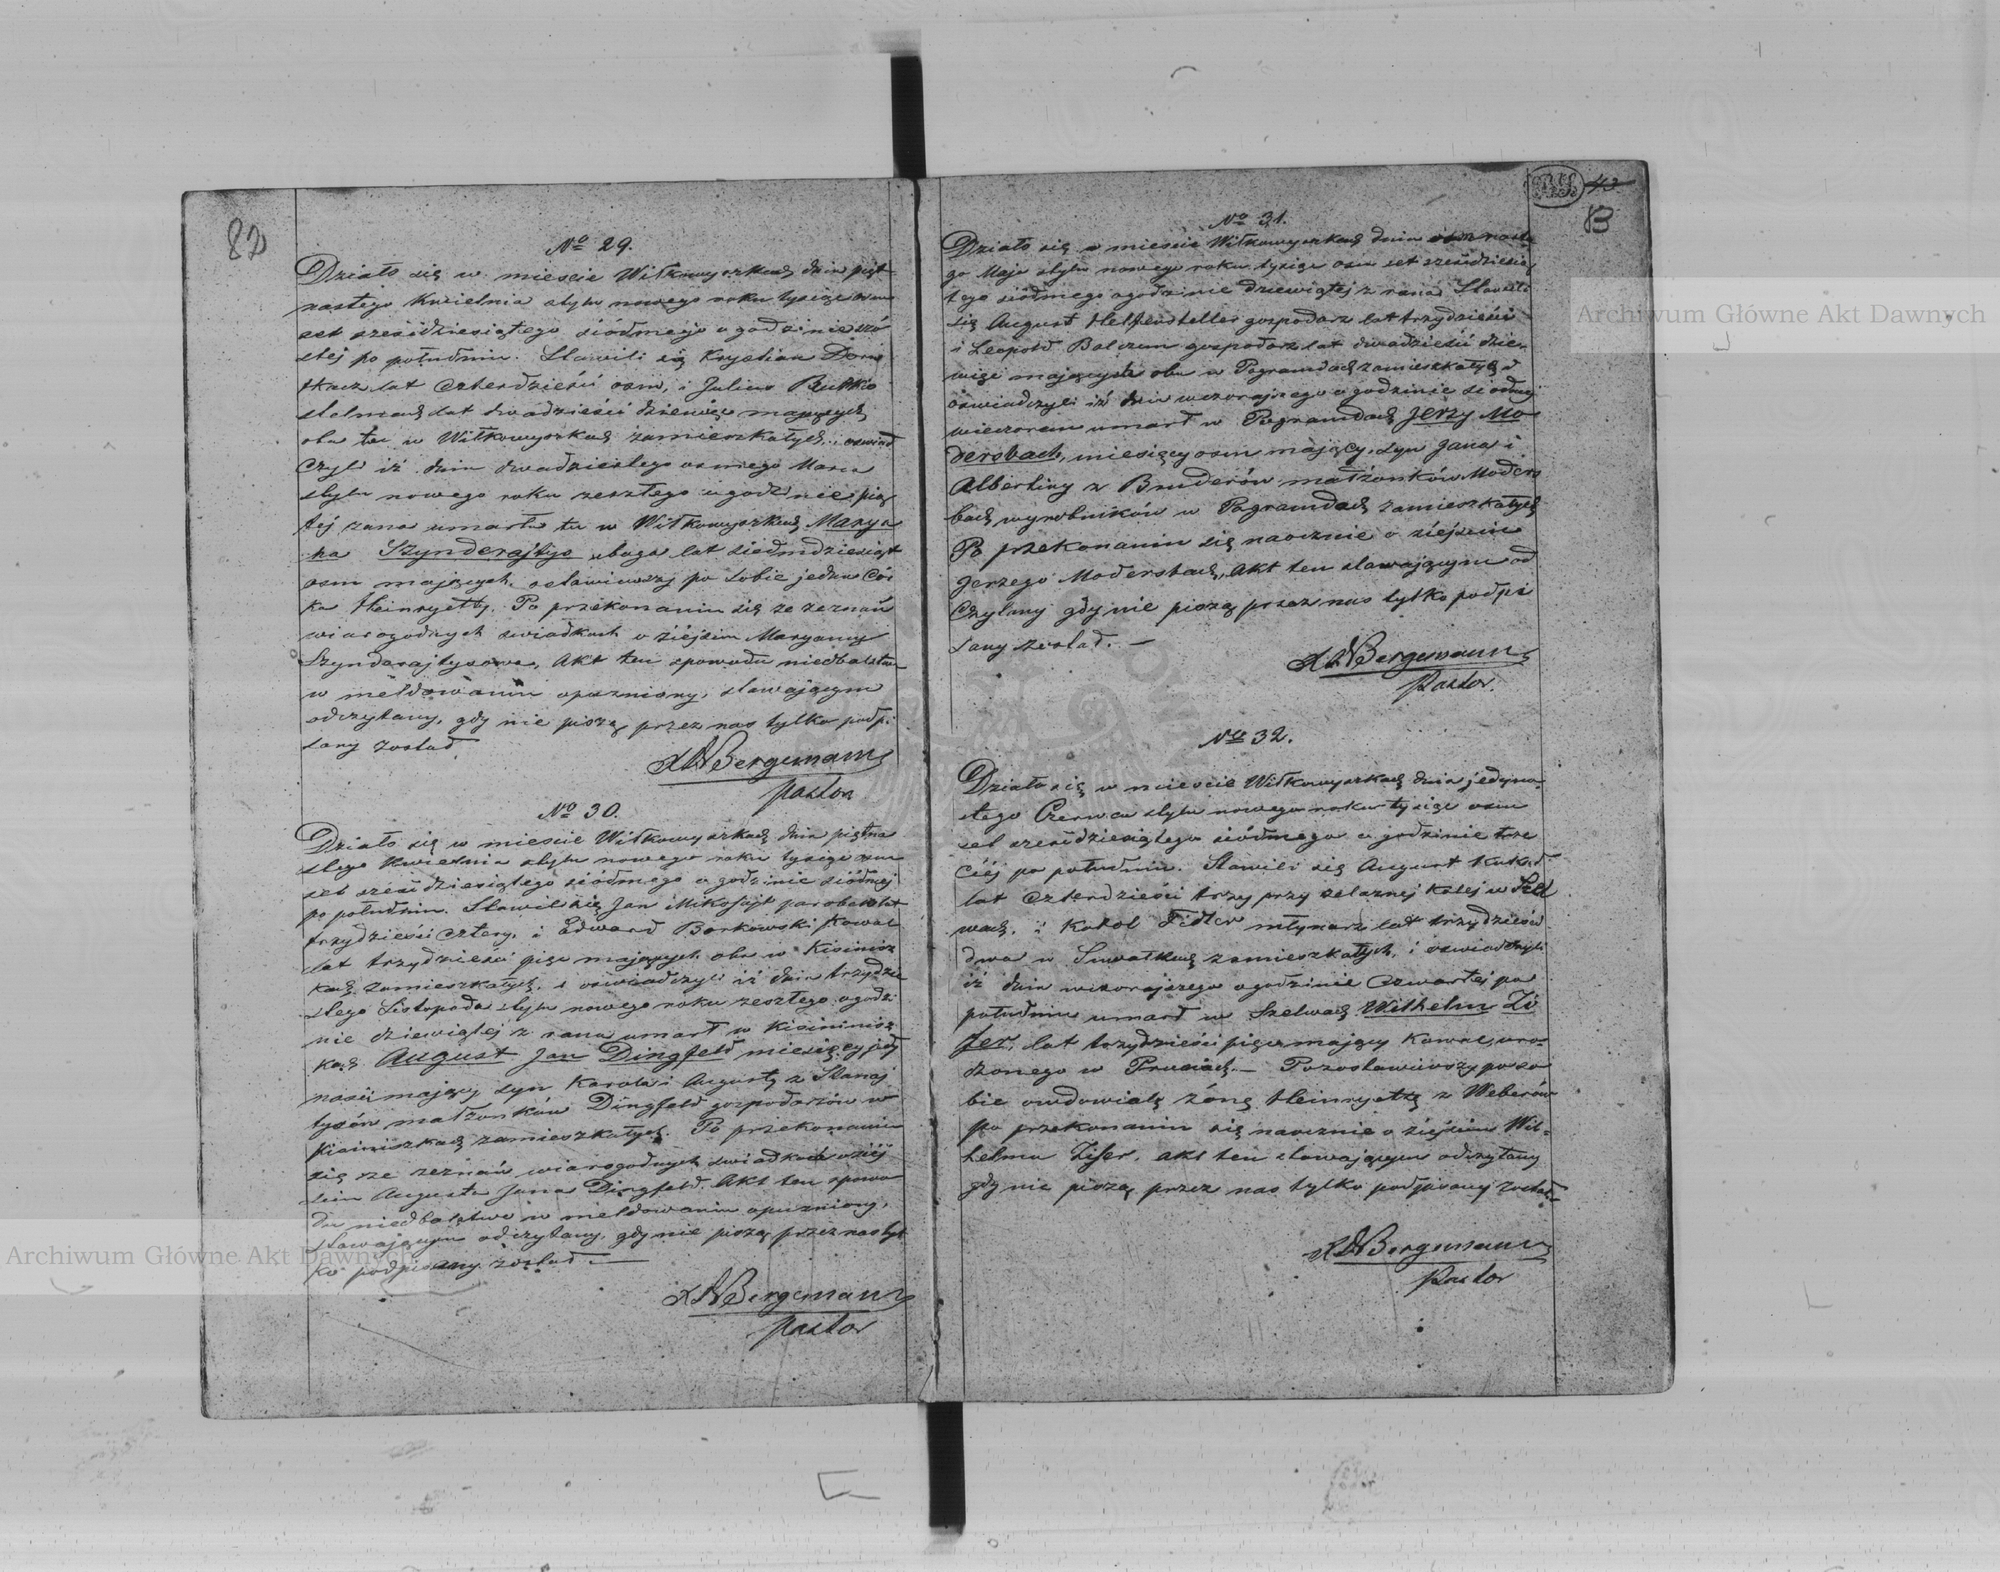 82
No 29.
Działo się w mieście Wiłkowyszkach dnia pięt-
nastego Kwietnia stylu nowego roku tysiąc osm
set sześćdziesiątego siódmego o godzinie szó
stej po południu. Stawili się Krystian Dorn
tkacz lat czterdzieści osm, i Julius Butkio
stelmach lat dwadzieścia dziewięć mających
oba tu w Wiłkowyszkach zamieszkałych, i oswiad
czyli iż dnia dwudziestego osmego Marca
stylu nowego roku zeszłego o godzinie pią
tej zrana umarła tu w Wiłkowyszkach Marya
na Szynderajtys uboga lat siedmdziesiąt
osm mających, ostawiwszy po sobie jedną Cór
kę Heinryettę. Po przekonaniu się ze zeznań
wiarogodnych swiadkach o ziejsciu Maryanny
Szynderajtysowa, Akt ten spowodu niedbalstwa
w meldowaniu opuzniony, stawającym
odczytany, gdy nie piszą przez nas tylko podpi
sany został
XABergemann
Pastor
No 30.
Działo się w mieście Wiłkowyszkach dnia piętna
stego Kwietnia stylu nowego roku tysiąc osm
set sześćdziesiątego siódmego o godzinie siódmej
po południu. Stawili się Jan Mikołajt parobek lat
trzydzieści cztery, i Edward Borkowski Kowal
lat trzydzieści pięć mających, oba w Kisinisz
kach zamieszkałych, i oświadczyli iż dnia trzydzie
stego Listopada stylu nowego roku zeszłego o godzi
nie dziewiątej z rana umarł w Kisinisz
kach August Jan Dingfeld miesięcy jedy
naści mający syn Karola i Augusty z Stanaj
tysów małżonków Dingfeld gospodarzów w
Kisiniszkach zamieszkałych. Po przekonaniu
się ze zeznań wiarogodnych swiadkach o ziej
ściu Augusta Jana Dingfeld. Akt ten spowo
du niedbalstwa w meldowaniu opuzniony,
stawającym odczytany, gdy nie piszą przez nas tyl
ko podpisany został
XABergemann
Pastor
43
83
No 31.
Działo się w mieście Wiłkowyszkach dnia osmnaste
go Maja stylu nowego roku tysiąc osm set sześćdziesią
tego siódmego o godzinie dziewiątej z rana. Stawili
się August Helfensteller gospodarz lat trzydzieści
i Leopold Balczun gospodarz lat dwadzieścia dzie-
więć mających oba w Pogramdach zamieszkałych
oświadczyli iż dnia wczorajszego o godzinie siódmej
wieczorem umarł w Pogramdach Jerzy Mo
dersbach, miesięcy osm mający, syn Jana i
Albertiny z Bruderów małżonków Moders
bach wyrobników w Pogramdach zamieszkałych
Po przekonaniu się naocznie o ziejściu
Jerzego Modersbach, Akt ten stawającym od
czytany gdy nie piszą przez nas tylko podpi
sany został. —
XABergemann
Pastor.
No 32.
Działo się w mieście Wiłkowyszkach dnia jedyna-
stego Czerwca stylu nowego roku tysiąc osm
set sześćdziesiątego siódmego o godzinie trze
ciej po południu. Stawili się August Kukat
lat czterdzieści trzy przy zelaznej kolej w Szel
wach, i Karol Fidler młynarz lat trzydzieści
dwa w Suwałkach zamieszkałych, i oswiadczyli
iż dnia wczorajszego o godzinie czwartej po
południu umarł w Szelwach Wilhelm Zi
fer, lat trzydzieści pięć mający Kowal, uro-
dzonego w Prusach. — Pozostawiwszy po so
bie owdowiałę żonę Heinryettę z Weberów
Po przekonaniu się naocznie o ziejściu Wil-
helma Zifer, akt ten stawającym odczytany
gdy nie piszą przez nas tylko podpisany został
XABergemann
Pastor
Archiwum Główne Akt Dawnych
Archiwum Główne Akt Dawnych